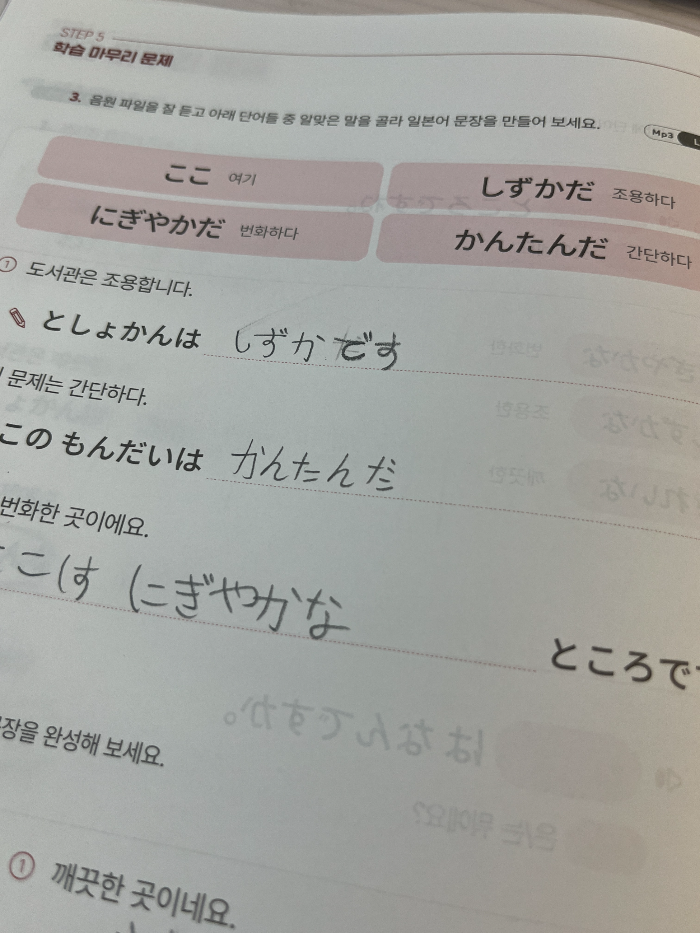 STEP 5
학습 마무리 문제
3. 음원 파일을 잘 듣고 아래 단어들 중 알맞은 말을 골라 일본어 문장을 만들어 보세요.
Mp3
ここ 여기
しずかだ 조용하다
にぎやかだ 번화하다
かんたんだ 간단하다
① 도서관은 조용합니다.
としょかんは しずかです
문제는 간단하다.
この もんだいは かんたんだ
번화한 곳이에요.
こ にぎやかな ところで
완성해 보세요.
① 깨끗한 곳이네요.